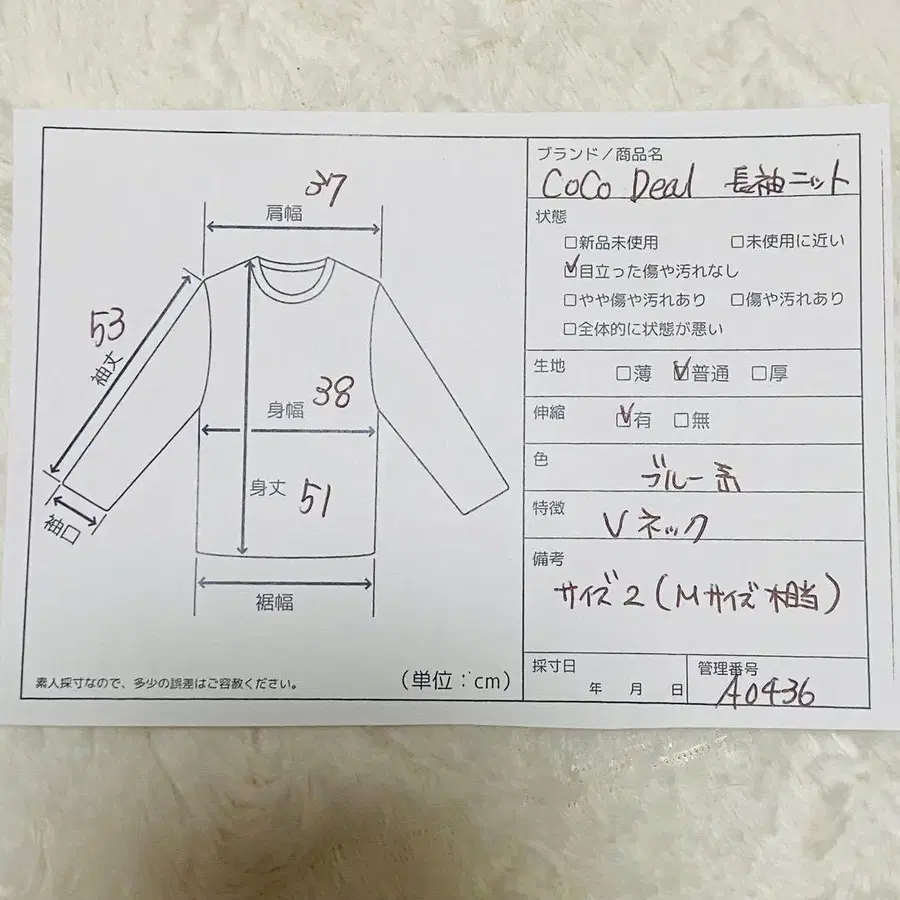 37
肩幅
53
袖丈
38
身幅
身丈 51
袖口
裾幅
素人採寸なので、多少の誤差はご容赦ください。
(単位:cm)
ブランド/商品名
CoCo Deal 長袖ニット
状態
□新品未使用 □未使用に近い
☑目立った傷や汚れなし
□やや傷や汚れあり □傷や汚れあり
□全体的に状態が悪い
生地 □薄 ☑普通 □厚
伸縮 ☑有 □無
色
ブルー系
特徴
Vネック
備考
サイズ2(Mサイズ相当)
採寸日
年 月 日
管理番号
A0436